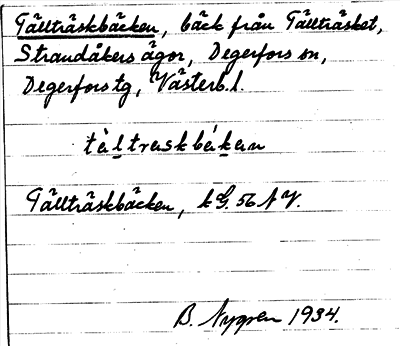 Tällträskbäcken, bäck från Tällträsket,
Strandåkers ägor, Degerfors sn,
Degerfors tg, Västerb. l.
tälträskbäkan
Tällträskbäcken, k G. 56 NV.
B. Nygren 1934.